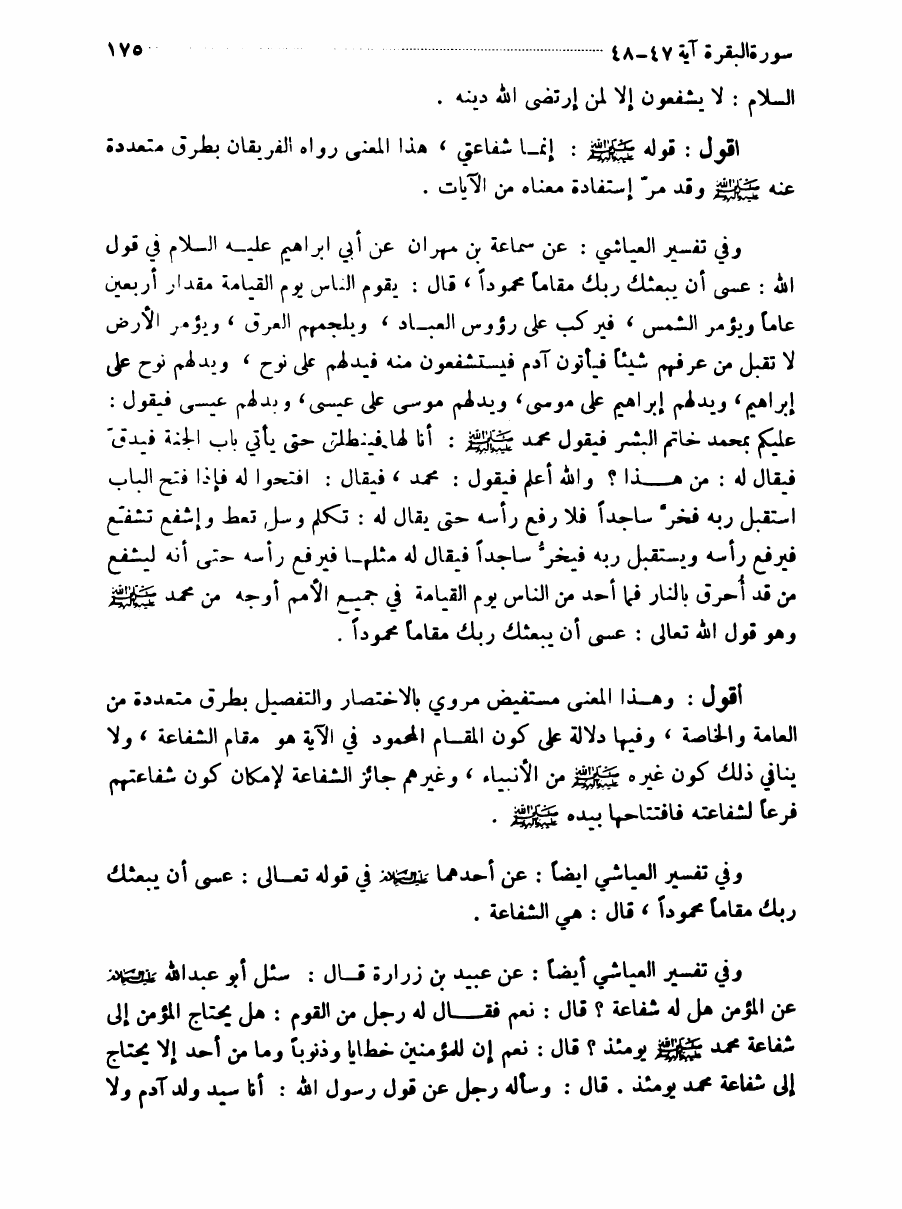 سورة البقرة آية ٤٧-٤٨ ١٧٥
السلام : لا يشفعون إلا لمن إرتضى الله دينه .
اقول : قوله ﷺ : إنما شفاعتي ، هذا المعنى رواه الفريقان بطرق متعددة
عنه ﷺ وقد مرّ إستفادة معناه من الآيات .
وفي تفسير العياشي : عن سماعة بن مهران عن أبي ابراهيم عليه السلام في قول
الله : عسى أن يبعثك ربك مقاماً محموداً ، قال : يقوم الناس يوم القيامة مقدار أربعين
عاماً ويؤمر الشمس ، فيركب على رؤوس العباد ، ويلجمهم العرق ، ويؤمر الأرض
لا تقبل من عرقهم شيئاً فيأتون آدم فيستشفعون منه فيدلهم على نوح ، ويدلهم نوح على
إبراهيم ، ويدلهم إبراهيم على موسى ، ويدلهم موسى على عيسى ، ويدلهم عيسى فيقول :
عليكم بمحمد خاتم البشر فيقول محمد ﷺ : أنا لها فينطلق حتى يأتي باب الجنة فيدقّ
فيقال له : من هذا ؟ والله أعلم فيقول : محمد ، فيقال : افتحوا له فإذا فتح الباب
استقبل ربه فخرّ ساجداً فلا رفع رأسه حتى يقال له : تكلم وسل تعط وإشفع تشفّع
فيرفع رأسه ويستقبل ربه فيخرّ ساجداً فيقال له مثلها فيرفع رأسه حتى أنه ليشفع
من قد أُحرق بالنار فما أحد من الناس يوم القيامة في جميع الأمم أوجه من محمد ﷺ
وهو قول الله تعالى : عسى أن يبعثك ربك مقاماً محموداً .
أقول : وهذا المعنى مستفيض مروي بالاختصار والتفصيل بطرق متعددة من
العامة والخاصة ، وفيها دلالة على كون المقام المحمود في الآية هو مقام الشفاعة ، ولا
ينافي ذلك كون غيره ﷺ من الأنبياء ، وغيرهم جائز الشفاعة لإمكان كون شفاعتهم
فرعاً لشفاعته فافتتاحها بيده ﷺ .
وفي تفسير العياشي ايضاً : عن أحدهما عليه السلام في قوله تعالى : عسى أن يبعثك
ربك مقاماً محموداً ، قال : هي الشفاعة .
وفي تفسير العياشي أيضاً : عن عبيد بن زرارة قال : سئل أبو عبدالله عليه السلام
عن المؤمن هل له شفاعة ؟ قال : نعم فقال له رجل من القوم : هل يحتاج المؤمن إلى
شفاعة محمد ﷺ يومئذ ؟ قال : نعم إن للمؤمنين خطايا وذنوباً وما من أحد إلا يحتاج
إلى شفاعة محمد يومئذ . قال : وسأله رجل عن قول رسول الله : أنا سيد ولد آدم ولا